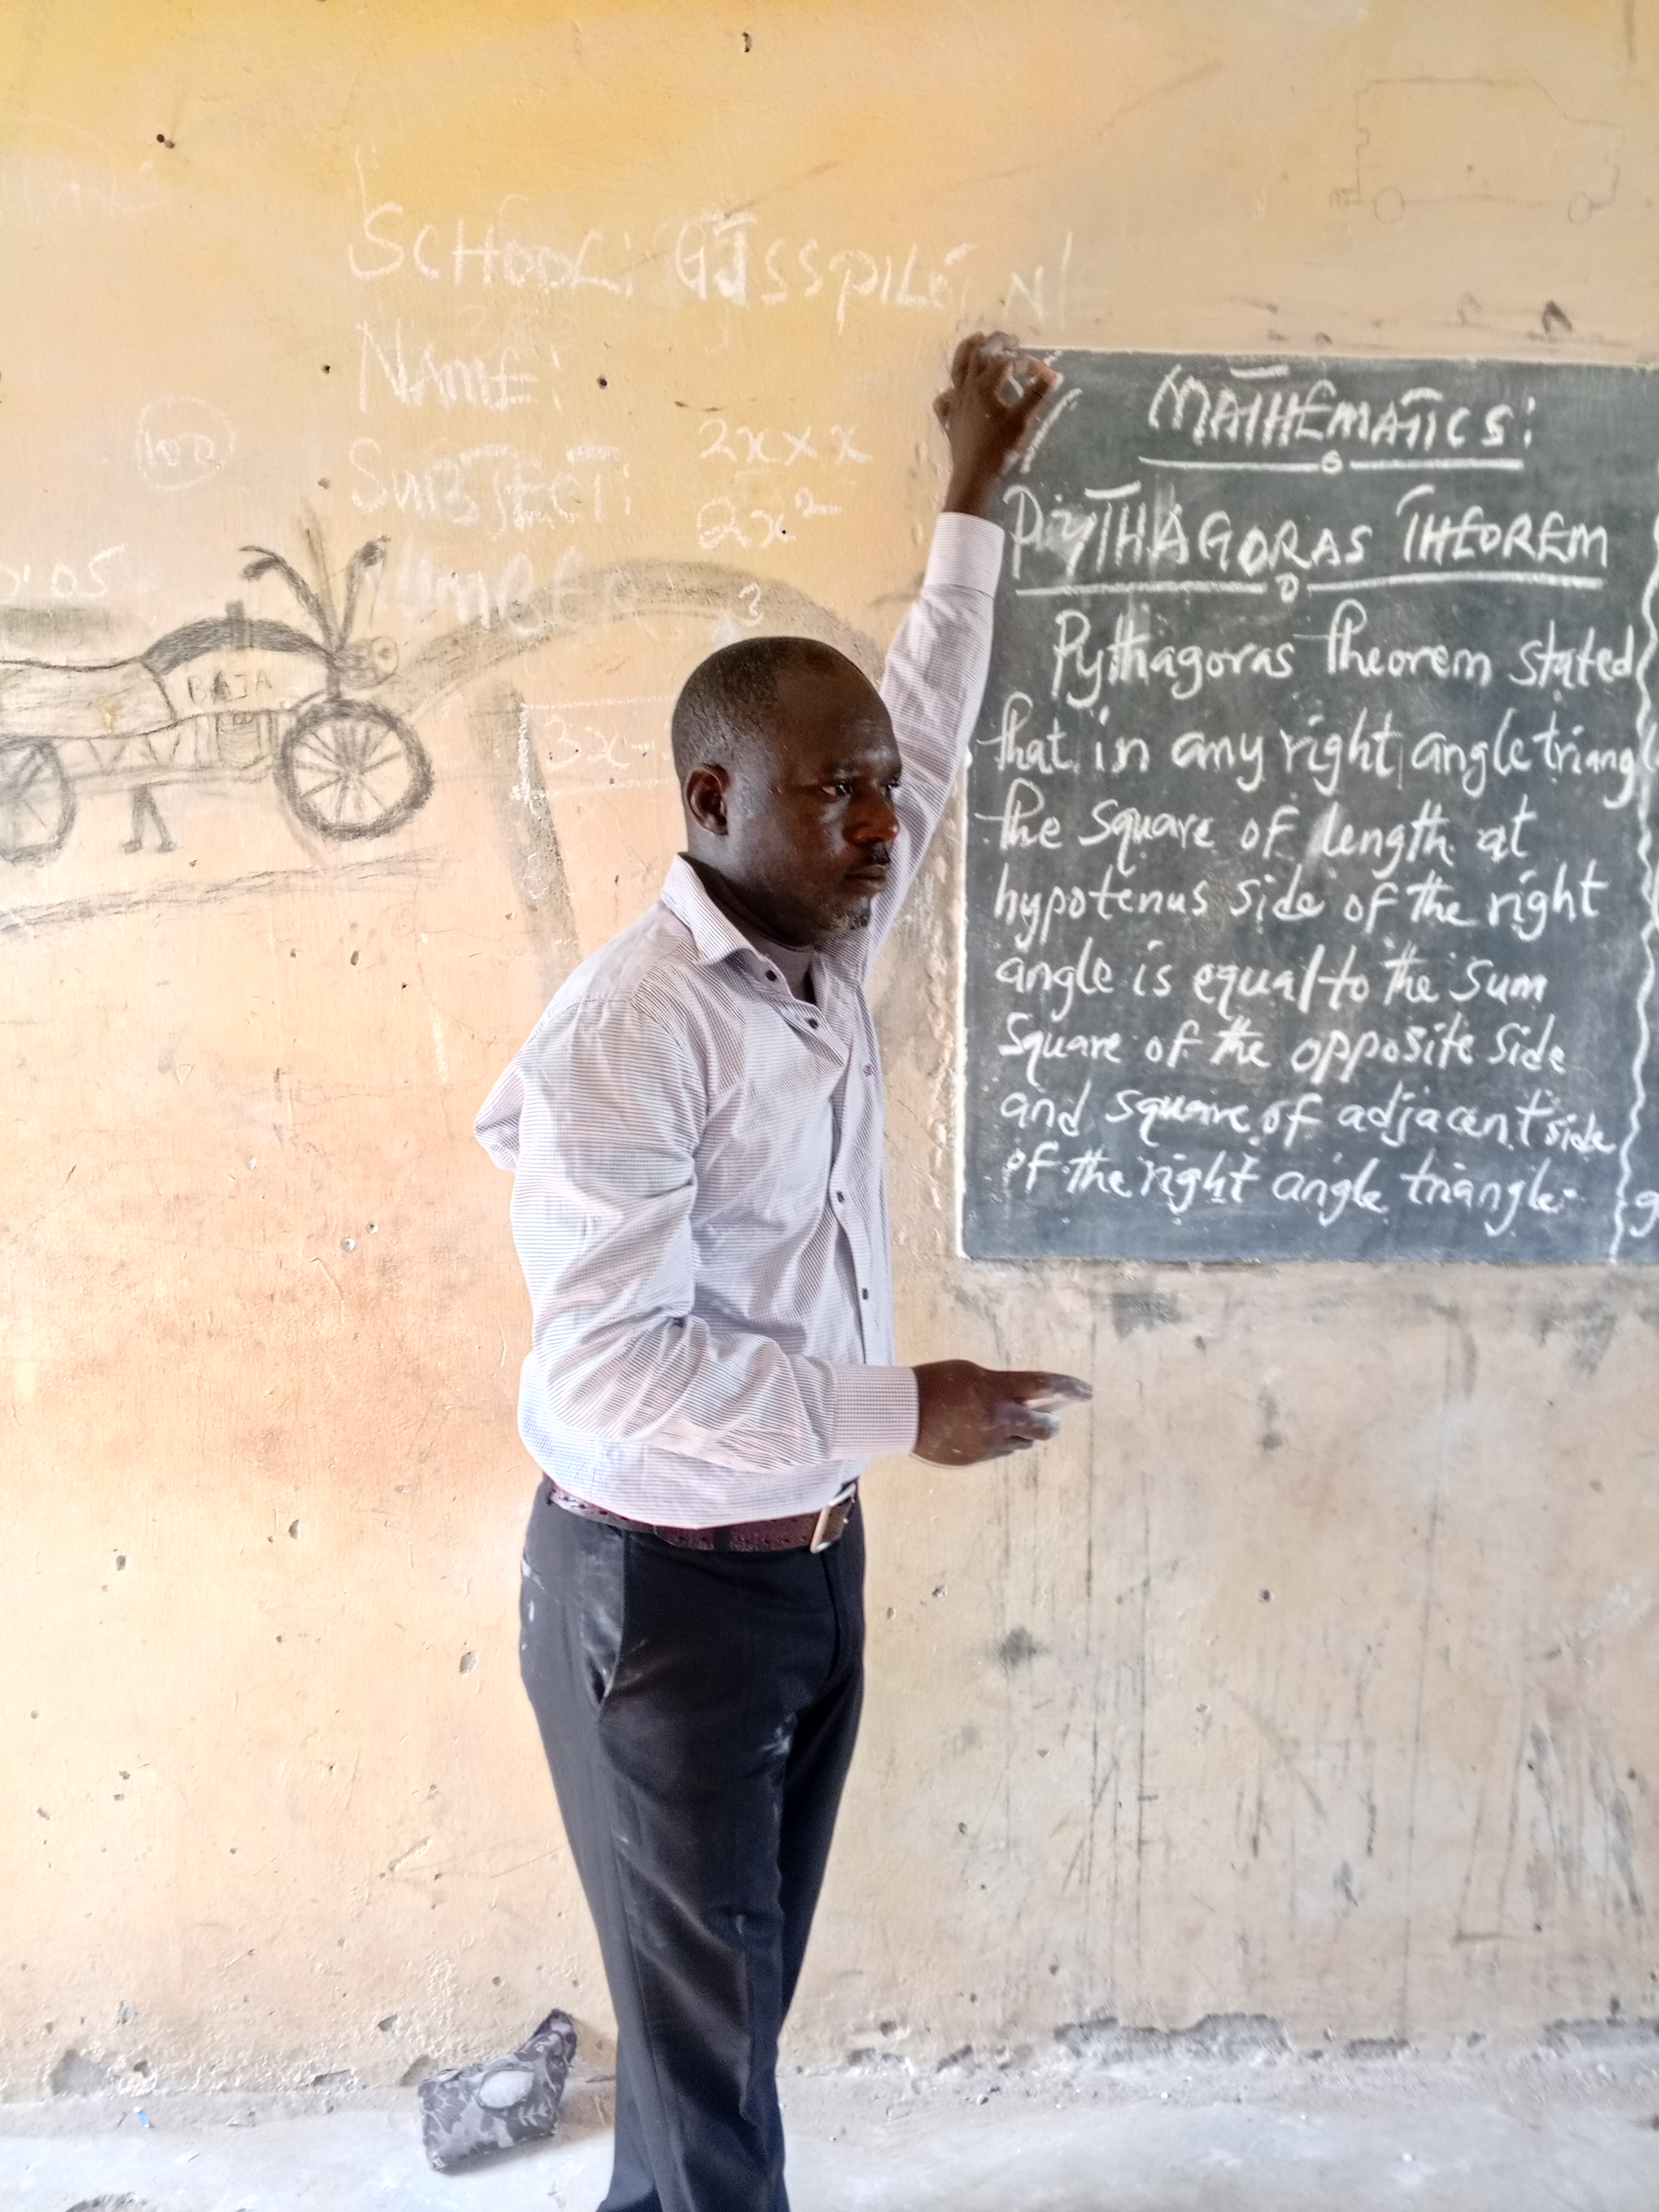 SCHOOL: GJSSPILOT N/
NAME:
SUBJECT:
NUMBER
100
2x × x
2x²
3
3x-
05
BAJA
MATHEMATICS:
PYTHAGORAS THEOREM
Pythagoras theorem stated
that in any right angle triangle
the square of length at
hypotenus side of the right
angle is equal to the sum
square of the opposite side
and square of adjacent side
of the right angle triangle.